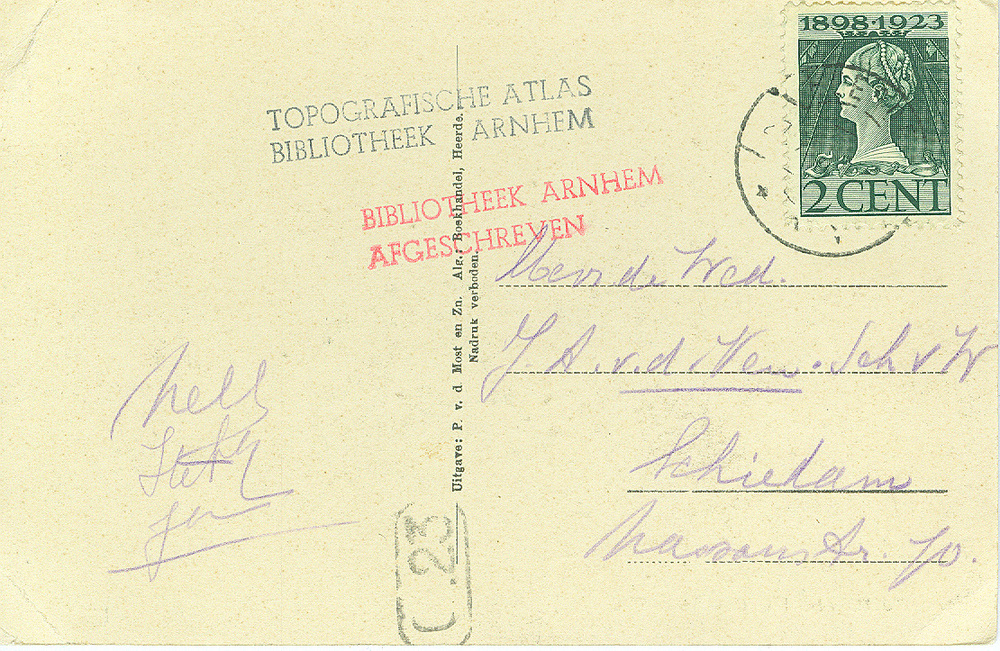 1898·1923
2 CENT
TOPOGRAFISCHE ATLAS
BIBLIOTHEEK ARNHEM
BIBLIOTHEEK ARNHEM
AFGESCHREVEN
Uitgave: P. v. d. Most en Zn. Alg. Boekhandel, Heerde.
Nadruk verboden.
Mevr de Wed.
J. A. v. d. Sch v W
Schiedam
Nassaustr. 70.
Nell
Jan
C.23